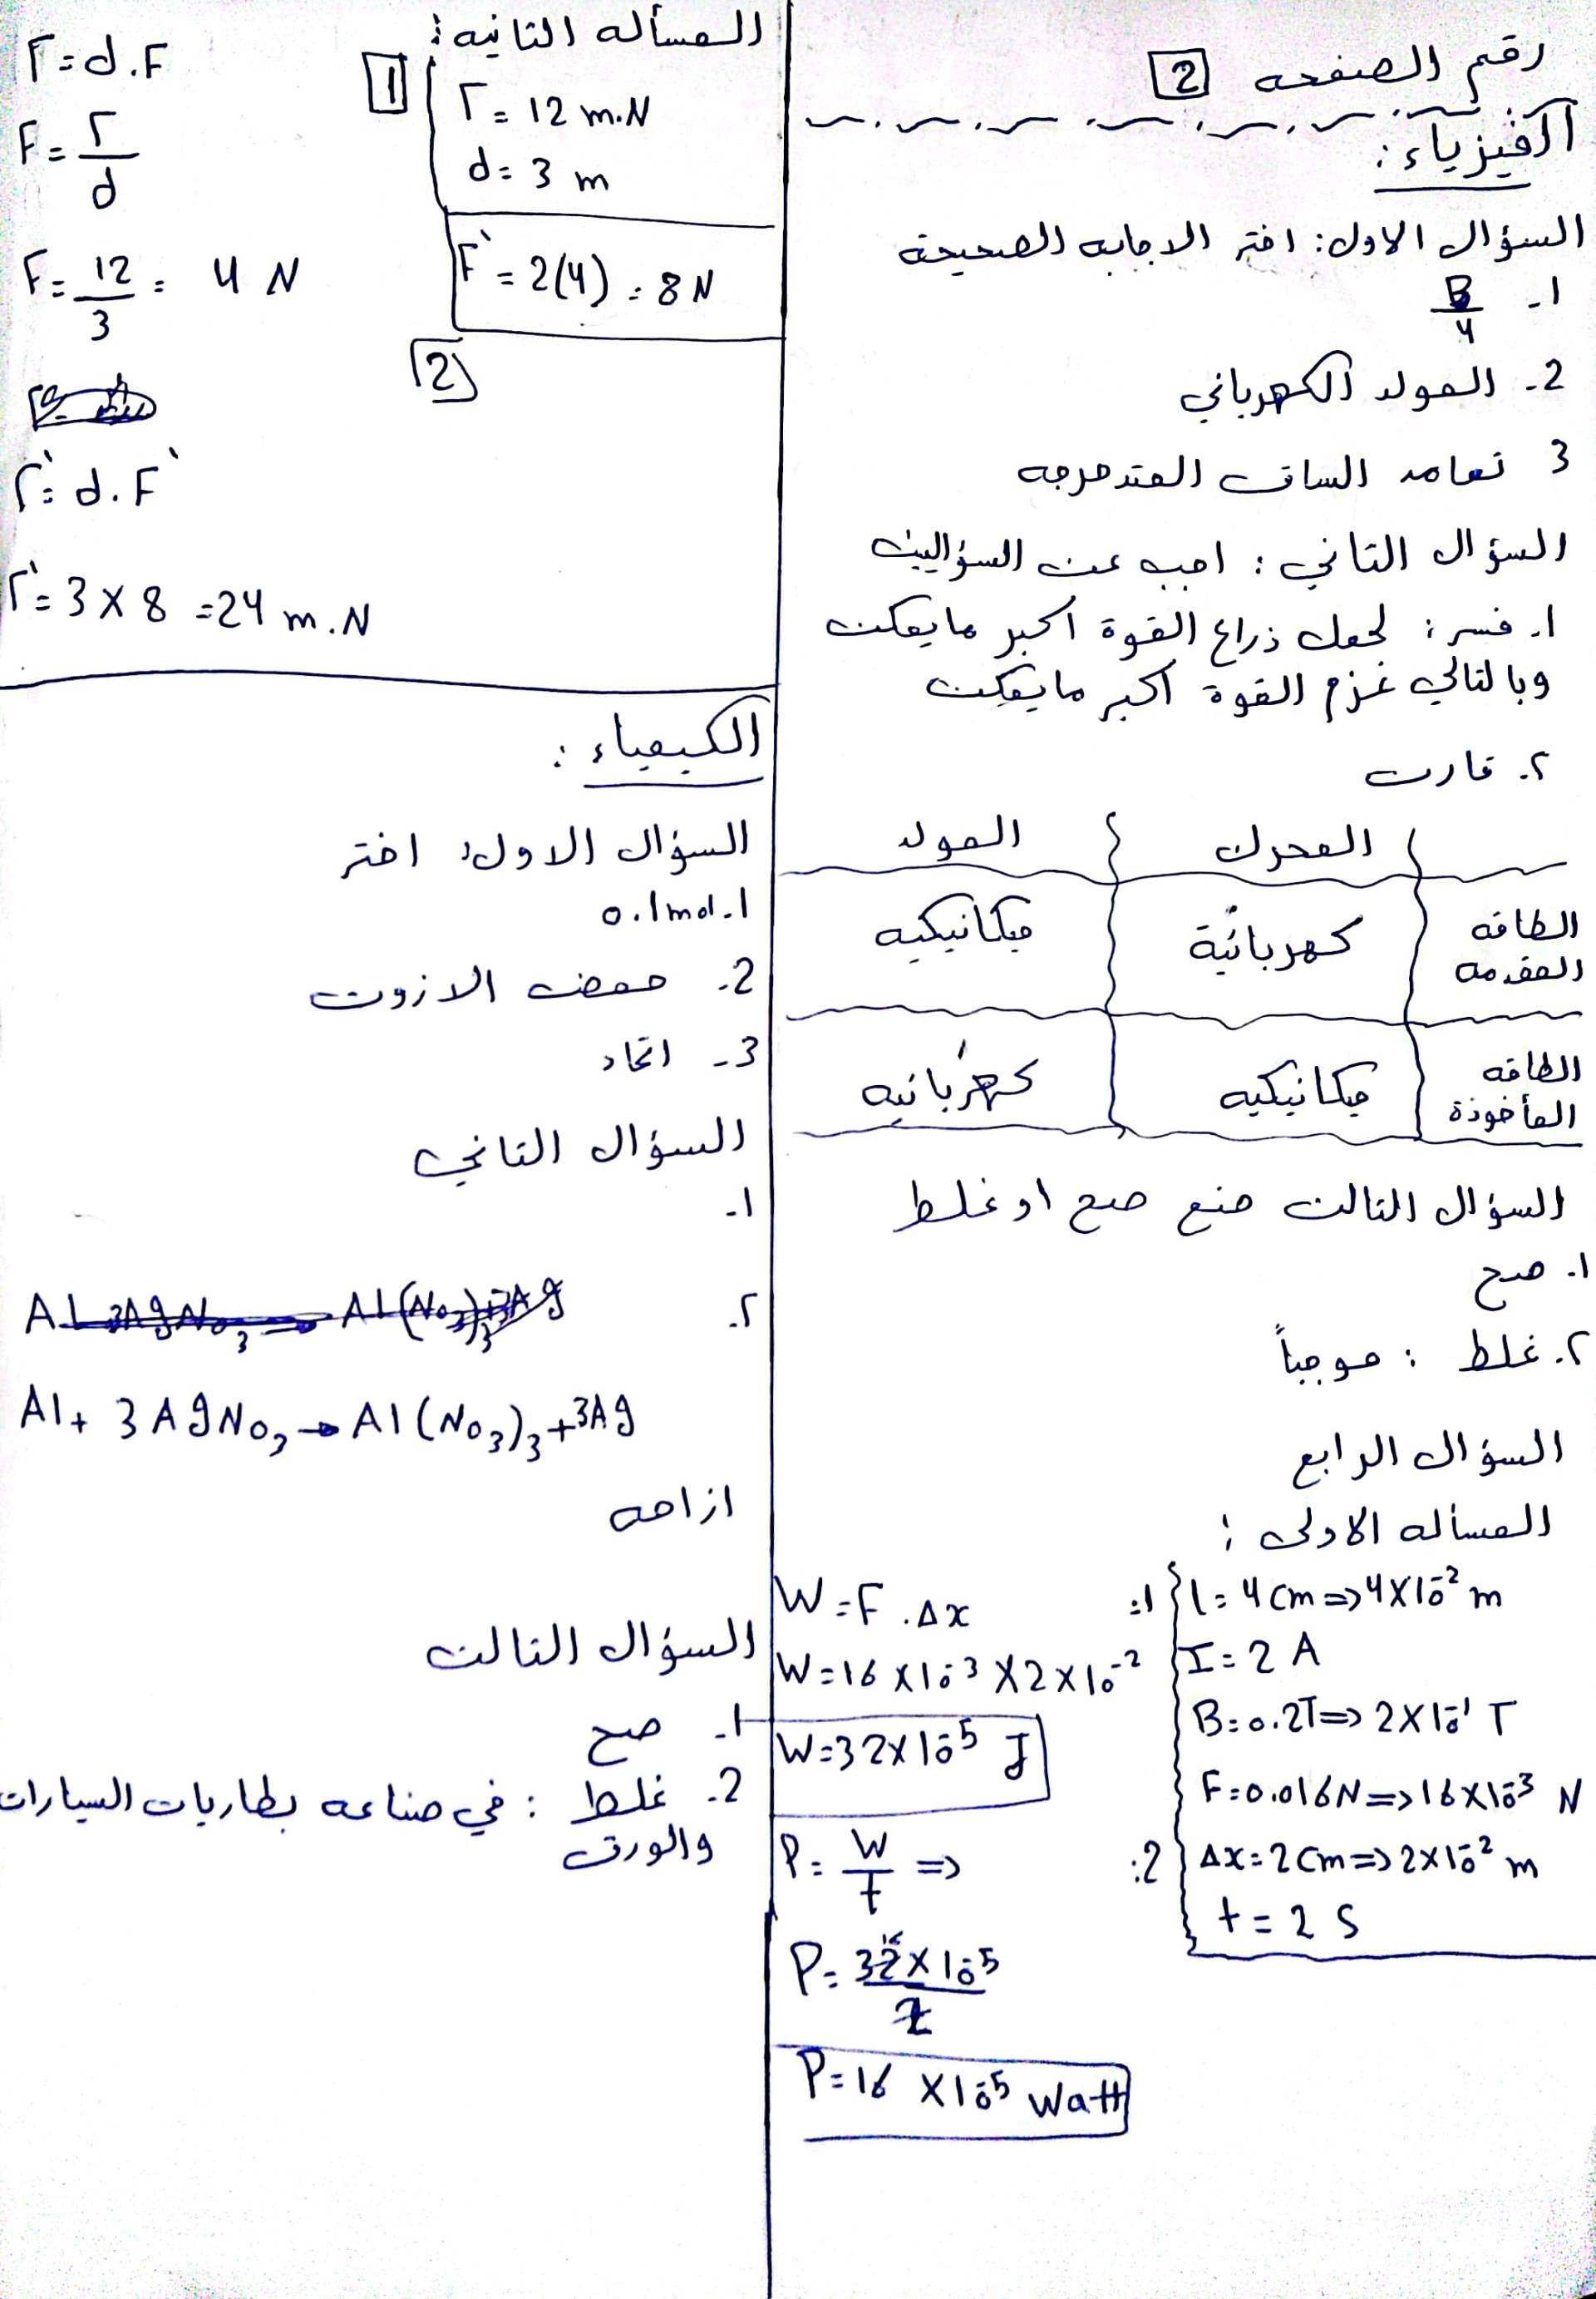 رقم الصفحه 2
الفيزياء:
السؤال الاول: اختر الاجابه الصحيحة
1- B/4
2- المولد الكهربائي
3 تعامد الساق المتدحرجه
السؤال الثاني: اجب عن السؤالين
1. فسر: لجعل ذراع القوة اكبر مايمكن
وبالتالي عزم القوة اكبر مايمكن
٢. قارن
المحرك المولد
الطاقه المقدمه كهربائية ميكانيكيه
الطاقه المأخوذة ميكانيكيه كهربائيه
السؤال الثالث ضع صح او غلط
1. صح
٢. غلط: موجباً
السؤال الرابع
المسأله الاولى:
l = 4 cm => 4×10⁻² m
I = 2 A
B = 0.2T => 2×10⁻¹ T
F = 0.016N => 16×10⁻³ N
Δx = 2cm => 2×10⁻² m
t = 2 S
1:
W = F . Δx
W = 16×10⁻³ × 2×10⁻²
W = 32×10⁻⁵ J
2:
P = W/t =>
P = 32×10⁻⁵ / 2
16
P = 16 ×10⁻⁵ Watt
المسأله الثانيه:
Γ = 12 m.N
d = 3 m
F` = 2(4) = 8 N
1
Γ = d.F
F = Γ/d
F = 12/3 = 4 N
2
Γ` = d.F`
Γ` = 3 × 8 = 24 m.N
الكيمياء:
السؤال الاول: اختر
1. 0.1mol
2. حمض الازوت
3- اتحاد
السؤال الثاني
1-
٢. Al 3AgNo₃ → Al(No₃)₃+3Ag
Al + 3AgNo₃ → Al(No₃)₃ + 3Ag
ازاحه
السؤال الثالث
1- صح
2. غلط: في صناعه بطاريات السيارات
والورق